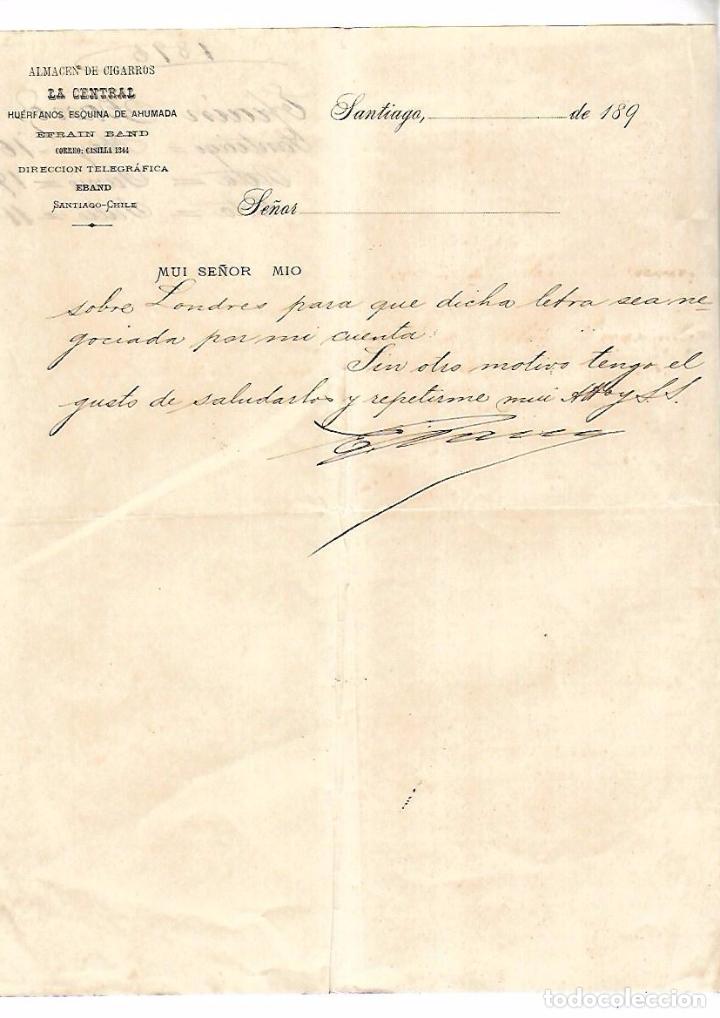 ALMACEN DE CIGARROS
LA CENTRAL
HUÉRFANOS ESQUINA DE AHUMADA
EFRAIN BAND
CORREO: CASILLA 1344
DIRECCION TELEGRÁFICA
EBAND
SANTIAGO-CHILE
Santiago, de 189
Señor
MUI SEÑOR MIO
sobre Londres para que dicha letra sea ne-
gociada por mi cuenta.
Sin otro motivo tengo el
gusto de saludarlos y repetirme mui Atto y S.S.
E. Band
todocoleccion